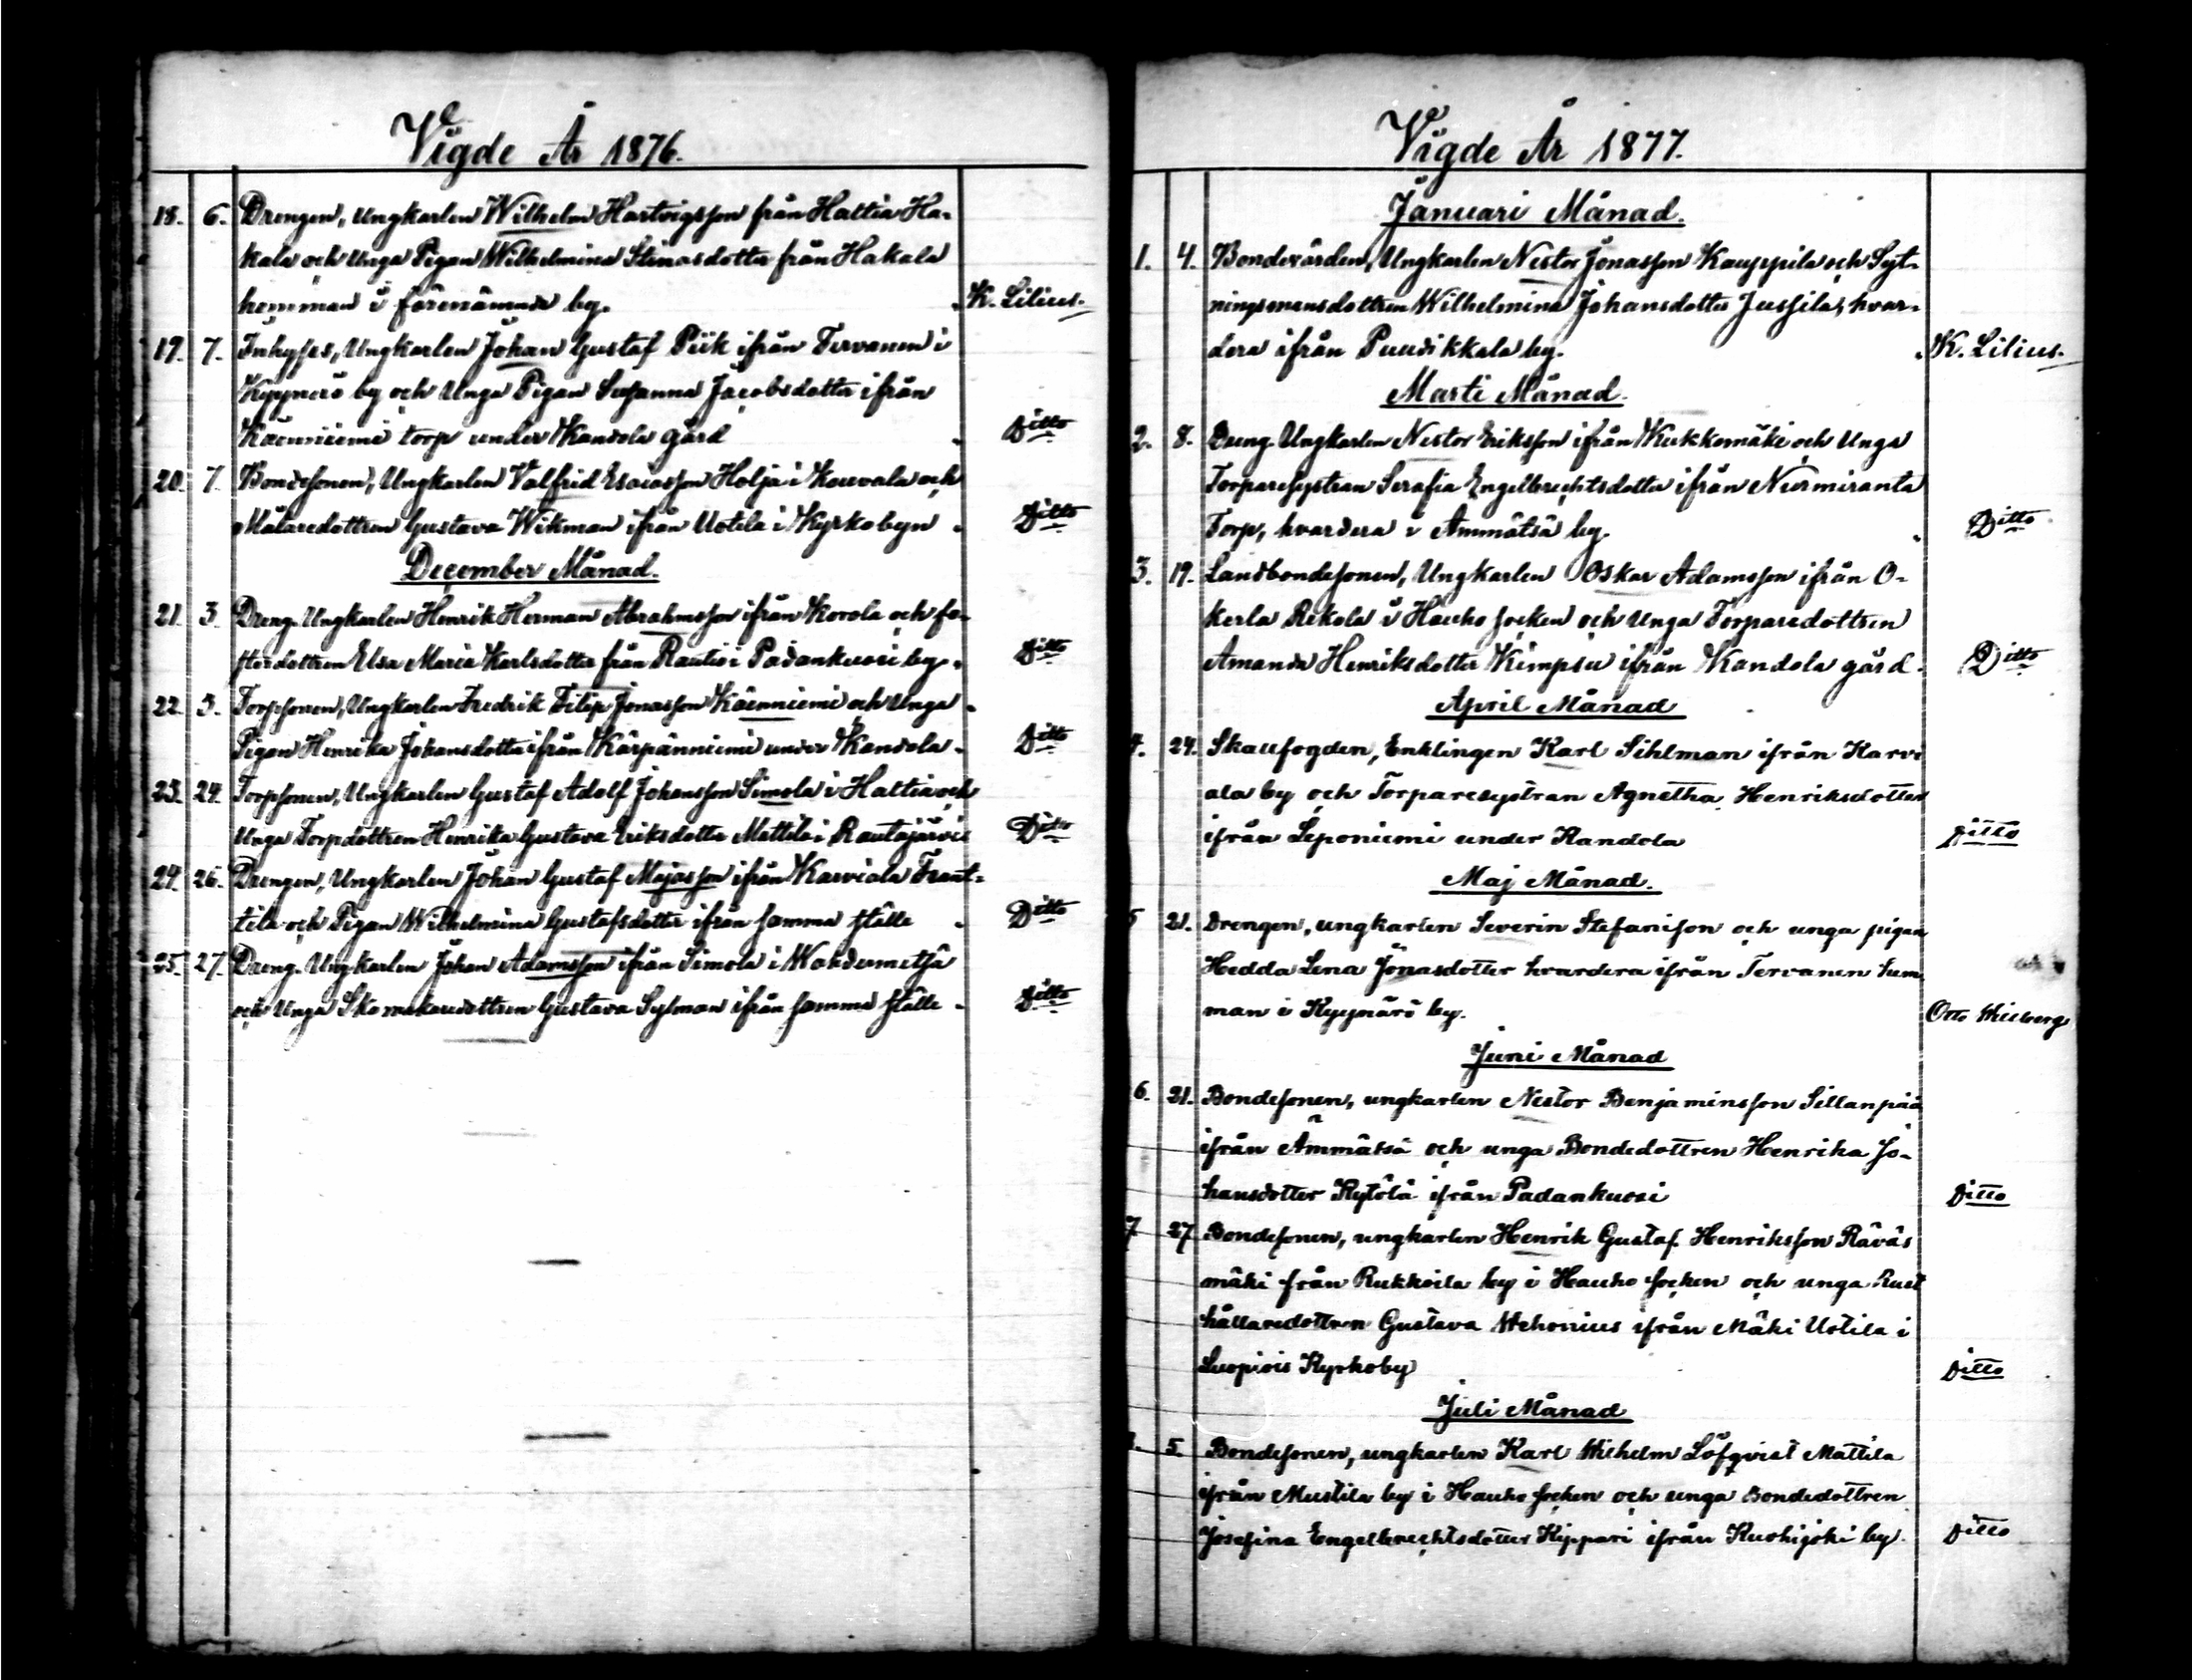 Vigde År 1876.
18. 6. Drengen, Ungkarlen Wilhelm Hartvigsson från Haltia Ha-
kala och Unga Pigan Wilhelmina Stinasdotter från Hakala
hemman i förenämnda by. K. Lilius.
19. 7. Inhyses, Ungkarlen Johan Gustaf Piik ifrån Tervanen i
Kyynärö by och Unga Pigan Susanna Jacobsdotter ifrån
Käenniemi torp under Kandola gård Ditto
20. 7. Bondesonen, Ungkarlen Valfrid Esaiasson Holja i Kouvala och
Målaredottren Gustava Wikman ifrån Uotila i Kyrkobyn Ditto
December Månad.
21. 3. Dreng. Ungkarlen Henrik Herman Abrahmsson ifrån Korola och fo-
sterdottren Elsa Maria Karlsdotter från Rautio i Padankuosi by. Ditto
22. 3. Torpsonen, Ungkarlen Fredrik Filip Jonasson Käenniemi och Unga
Pigan Henrika Johansdotter ifrån Kärpänniemi under Kandola. Ditto
23. 24. Torpsonen, Ungkarlen Gustaf Adolf Johansson Simola i Haltia och
Unga Torpdottren Henrika Gustava Eriksdotter Mattila i Rautajärvi Ditto
24. 26. Drengen, Ungkarlen Johan Gustaf Majasson ifrån Karviala Trant-
tila och Pigan Wilhelmina Gustafsdotter ifrån samma ställe Ditto
25. 27. Dreng. Ungkarlen Johan Adamsson ifrån Simola i
och Unga Skomakaredottren Gustava Sylman ifrån samma ställe Ditto
Vigde År 1877.
Januari Månad.
1. 4. Bondevärden, Ungkarlen Nestor Jonasson Kauppila och Syt-
ningsmansdottren Wilhelmina Johansdotter Jussila, hvar-
dera ifrån Puudikkala by. K. Lilius.
Marti Månad.
2. 8. Dreng. Ungkarlen Nestor Eriksson ifrån Kukkomäki och Unga
Torparesystran Serafia Engelbrechtsdotter ifrån Nurmiranta
Torp, hvardera i Ämmätsä by. Ditto
3. 19. Landbondesonen, Ungkarlen Oskar Adamsson ifrån O-
kerla Rekola i Hauho socken och Unga Torparedottren
Amanda Henriksdotter Kimpsu ifrån Kandola gård. Ditto
April Månad
4. 24. Skaufogden, Enklingen Karl Sihlman ifrån Karvi
ala by och Torparesystran Agnetha Henriksdotter
ifrån Leponiemi under Kandola Ditto
Maj Månad.
5 21. Drengen, ungkarlen Severin Stefanison och unga pigan
Hedda Lena Jonasdotter hvardera ifrån Tervanen hem
man i Kyynärö by. Otto
Juni Månad
6. 21. Bondesonen, ungkarlen Nestor Benjaminsson Sillanpää
ifrån Ämmätsä och unga Bondedottren Henrika Jo-
hansdotter Kytölä ifrån Padankuosi Ditto
7 27 Bondesonen, ungkarlen Henrik Gustaf Henriksson Räväs
mäki från Rukkoila by i Hauho socken och unga Rust
hållaredottren Gustava Wehonius ifrån Mäki Uotila i
Luopiois Kyrkoby Ditto
Juli Månad
5. Bondesonen, ungkarlen Karl Wilhelm Löfqvist Mattila
ifrån Mustila by i Hauho socken och unga Bondedottren
Josefina Engelbrechtsdotter Kippari ifrån Kuohijoki by. Ditto